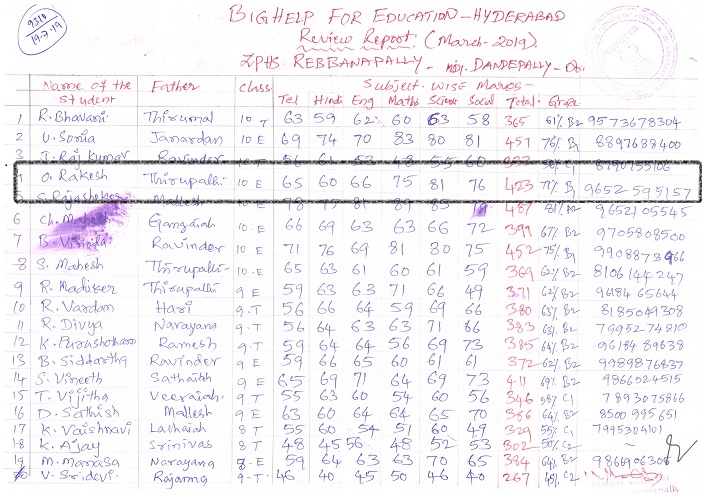 9310
19-7-19
BIGHELP FOR EDUCATION - HYDERABAD
Review Report. (March-2019).
ZPHS. REBBANAPALLY - DANDEPALLY -
Name of the Student Father class Subject wise Marks -
Tel Hindi Eng Maths Science Social Total Grade
1 R. Bhavani Thirumal 10 T 63 59 62 60 63 58 365 61% B2 9573678304
2 V. Sonia Janardan 10 E 69 74 70 83 80 81 457 76% B1 8897688400
3 J. Raj Kumar Ravinder 10 T 56 61 53 48 55 60
O. Rakesh Thirupathi 10 E 65 60 66 75 81 76 423 71% B1 9652595157
Rajashekar Mallesh 10 E 78 75 81 89 85 487 81% A2 9652105545
6 Ch. Mahesh Gangaiah 10 E 66 69 63 63 66 72 399 67% B2 9705808500
7 B. Ravinder 10 E 71 76 69 81 80 75 452 75% B1
8 S. Mahesh Thirupathi 10 E 65 63 61 60 61 59 369 62% B2 8106144247
9 R. Thirupathi 9 E 59 63 63 71 66 49 371 62% B2 9618465644
10 R. Vardan Hari 9 T 56 66 64 59 69 66 380 63% B2 8185049308
11 R. Divya Narayana 9 T 56 64 63 63 71 86 383 63% B2 7995274810
12 K. Purushotham Ramesh 9 T 59 64 64 56 69 73 385 64% B2 9618489638
13 B. Siddartha Ravinder 9 E 59 66 65 60 61 61 372 62% B2 9989876837
14 S. Vineeth Sathaiah 9 E 65 69 71 64 69 73 411 69% B2 9866024515
15 T. Vijitha Veeraiah 9 T 55 63 60 54 60 56 346 58% C1 7893075866
16 D. Sathish Mallesh 9 E 63 60 64 64 65 70 386 64% B2 8500995651
17 K. Vaishnavi Lachaiah 8 T 55 60 54 51 60 49 329 55% C1 7995304101
18 K. Ajay Srinivas 8 T 48 45 56 48 52 53 302 50% C2 -
19 M. Manasa Narayana 8 E 59 64 63 63 70 65 384 64% B2
20 V. Sridevi Rajanna 9 T 46 40 45 50 46 40 267 45% C2